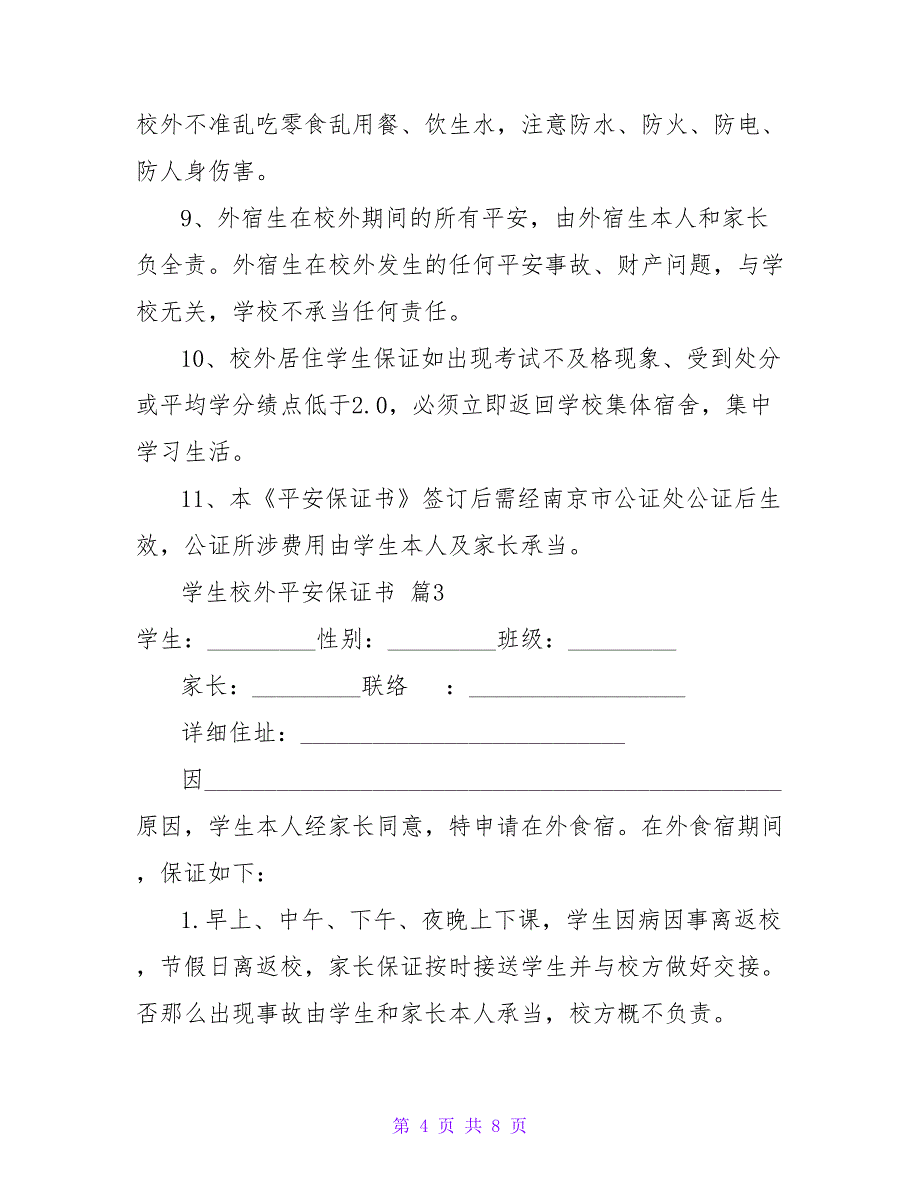 校外不准乱吃零食乱用餐、饮生水，注意防水、防火、防电、
防人身伤害。
9、外宿生在校外期间的所有平安，由外宿生本人和家长
负全责。外宿生在校外发生的任何平安事故、财产问题，与学
校无关，学校不承当任何责任。
10、校外居住学生保证如出现考试不及格现象、受到处分
或平均学分绩点低于2.0，必须立即返回学校集体宿舍，集中
学习生活。
11、本《平安保证书》签订后需经南京市公证处公证后生
效，公证所涉费用由学生本人及家长承当。
学生校外平安保证书 篇3
学生：_________性别：_________班级：_________
家长：_________联络 ：__________________
详细住址：___________________________
因________________________________________________
原因，学生本人经家长同意，特申请在外食宿。在外食宿期间
，保证如下：
1.早上、中午、下午、夜晚上下课，学生因病因事离返校
，节假日离返校，家长保证按时接送学生并与校方做好交接。
否那么出现事故由学生和家长本人承当，校方概不负责。
第 4 页 共 8 页